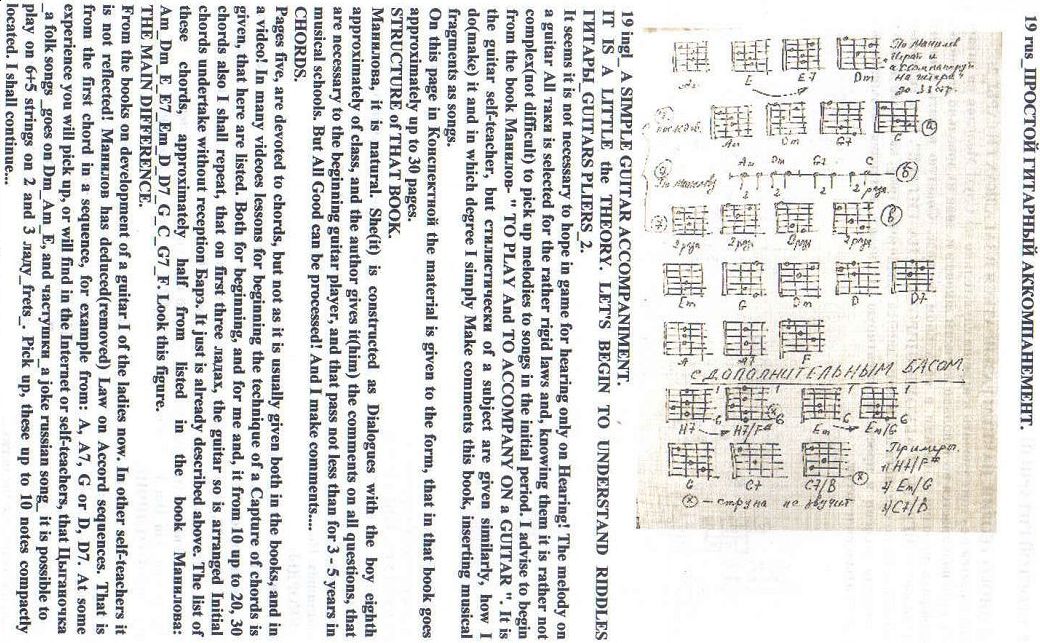 19 rus_ПРОСТОЙ ГИТАРНЫЙ АККОМПАНЕМЕНТ.
По Манилов
Играй и
аккомпанируй
на гитаре
до 33 стр.
Am E E7 Dm
Am Dm G7 C а
Am Dm G7 C
2 2 2 раза б
2 раза 2 раза 2 раза 2 раза в
Em G Gm D D7
A A7 F
С ДОПОЛНИТЕЛЬНЫМ БАСОМ.
H7 H7/F# Em Em/G
G C7 C7/B
Примеры.
H7/F#
Em/G
C7/B
x – струна не звучит
19 ingl_A SIMPLE GUITAR ACCOMPANIMENT.
IT IS A LITTLE the THEORY. LET'S BEGIN TO UNDERSTAND RIDDLES
ГИТАРЫ_GUITARS PLIERS_2.
It seems it is not necessary to hope in game for hearing only on Hearing! The melody on
a guitar All таки is selected for the rather rigid laws and, knowing them it is rather not
complex(not difficult) to pick up melodies to songs in the initial period. I advise to begin
from the book Манилов- " TO PLAY And TO ACCOMPANY ON a GUITAR ". It is
the guitar self-teacher, but стилистически of a subject are given similarly, how I
do(make) it and in which degree I simply Make comments this book, inserting musical
fragments as songs.
On this page in Конспектной the material is given to the form, that in that book goes
approximately up to 30 pages.
STRUCTURE of THAT BOOK.
Манилова, it is natural. She(it) is constructed as Dialogues with the boy eighth
approximately of class, and the author gives it(him) the comments on all questions, that
are necessary to the beginning guitar player, and that pass not less than for 3 - 5 years in
musical schools. But All Good can be processed! And I make comments....
CHORDS.
Pages five, are devoted to chords, but not as it is usually given both in the books, and in
a video! In many videoes lessons for beginning the technique of a Capture of chords is
given, that here are listed. Both for beginning, and for me and, it from 10 up to 20, 30
chords also I shall repeat, that on first three ладах, the guitar so is arranged Initial
chords undertake without reception Барэ. It just is already described above. The list of
these chords, approximately half from listed in the book Манилова:
Am_Dm_E_E7_Em_D_D7_G_C_G7_F. Look this figure.
THE MAIN DIFFERENCE.
From the books on development of a guitar I of the ladies now. In other self-teachers it
is not reflected! Манилов has deduced(removed) Law on Accord sequences. That is
from the first chord in a sequence, for example from: A, A7, G or D, D7. At some
experience you will pick up, or will find in the Internet or self-teachers, that Цыганочка
_a folk songs_ goes on Dm_Am_E, and частушки_ a joke russian song_ it is possible to
play on 6+5 strings on 2 and 3 ладу_frets_. Pick up, these up to 10 notes compactly
located. I shall continue...